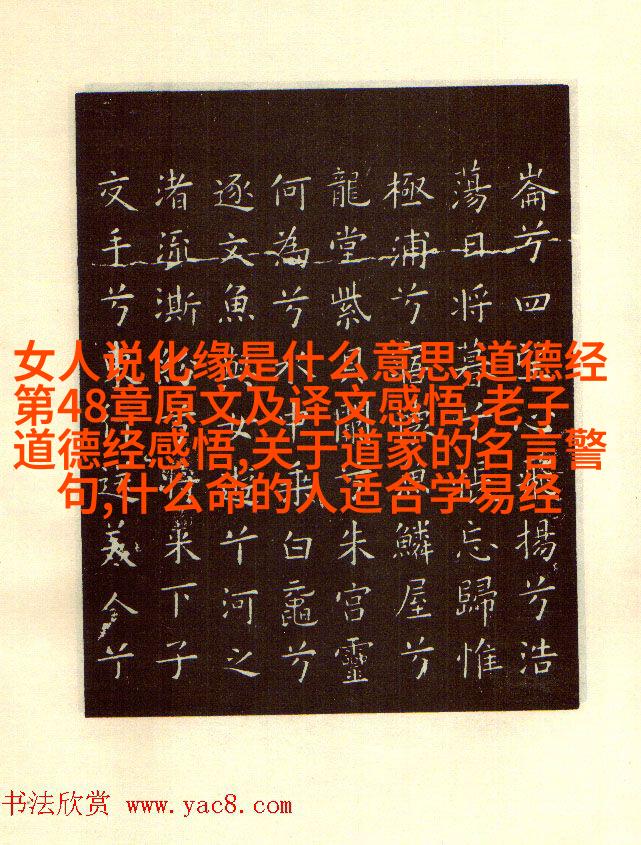 崙兮四心揚兮浩
蕩日將暮兮忘歸惟
極浦兮寤懷魚鱗屋兮
龍堂紫貝闕兮朱宮靈
何為兮水中乘白黿兮
逐文魚與女遊兮河之
渚流澌紛將來下子
交手兮東行送美人兮
女人说化缘是什么意思,道德经
第48章原文及译文感悟,老子
道德经感悟,关于道家的名言警
句,什么命的人适合学易经
书法欣赏 www.yac8.com